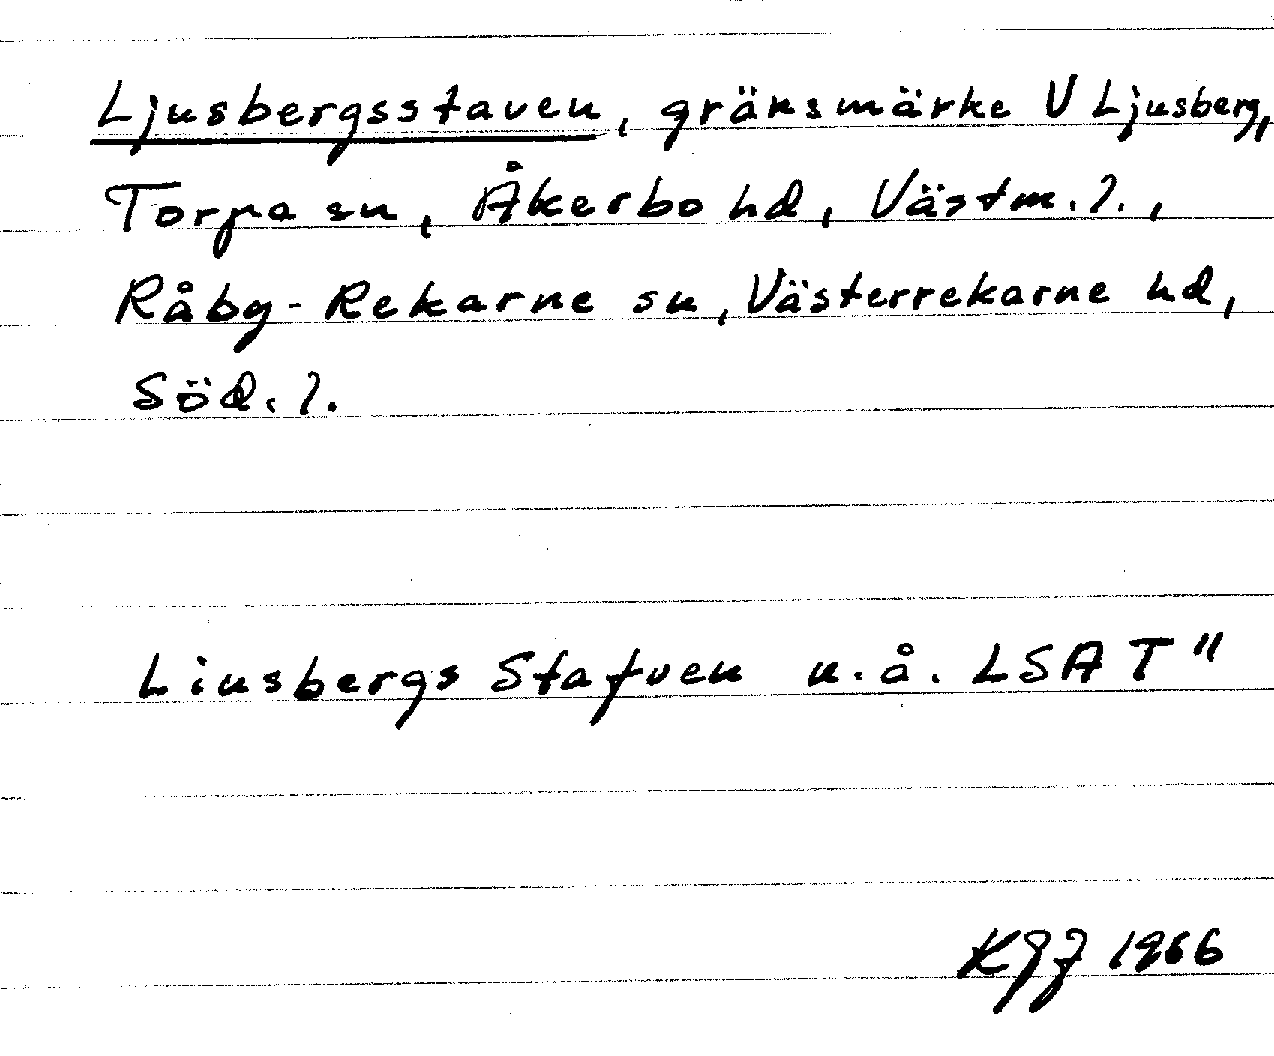 Ljusbergsstaven, gränsmärke V Ljusberg,
Torpa sn, Åkerbo hd, Västm. l.,
Råby-Rekarne sn, Västerrekarne hd,
Söd. l.
Liusbergs Stafven u.å. LSA T"
KGJ 1966